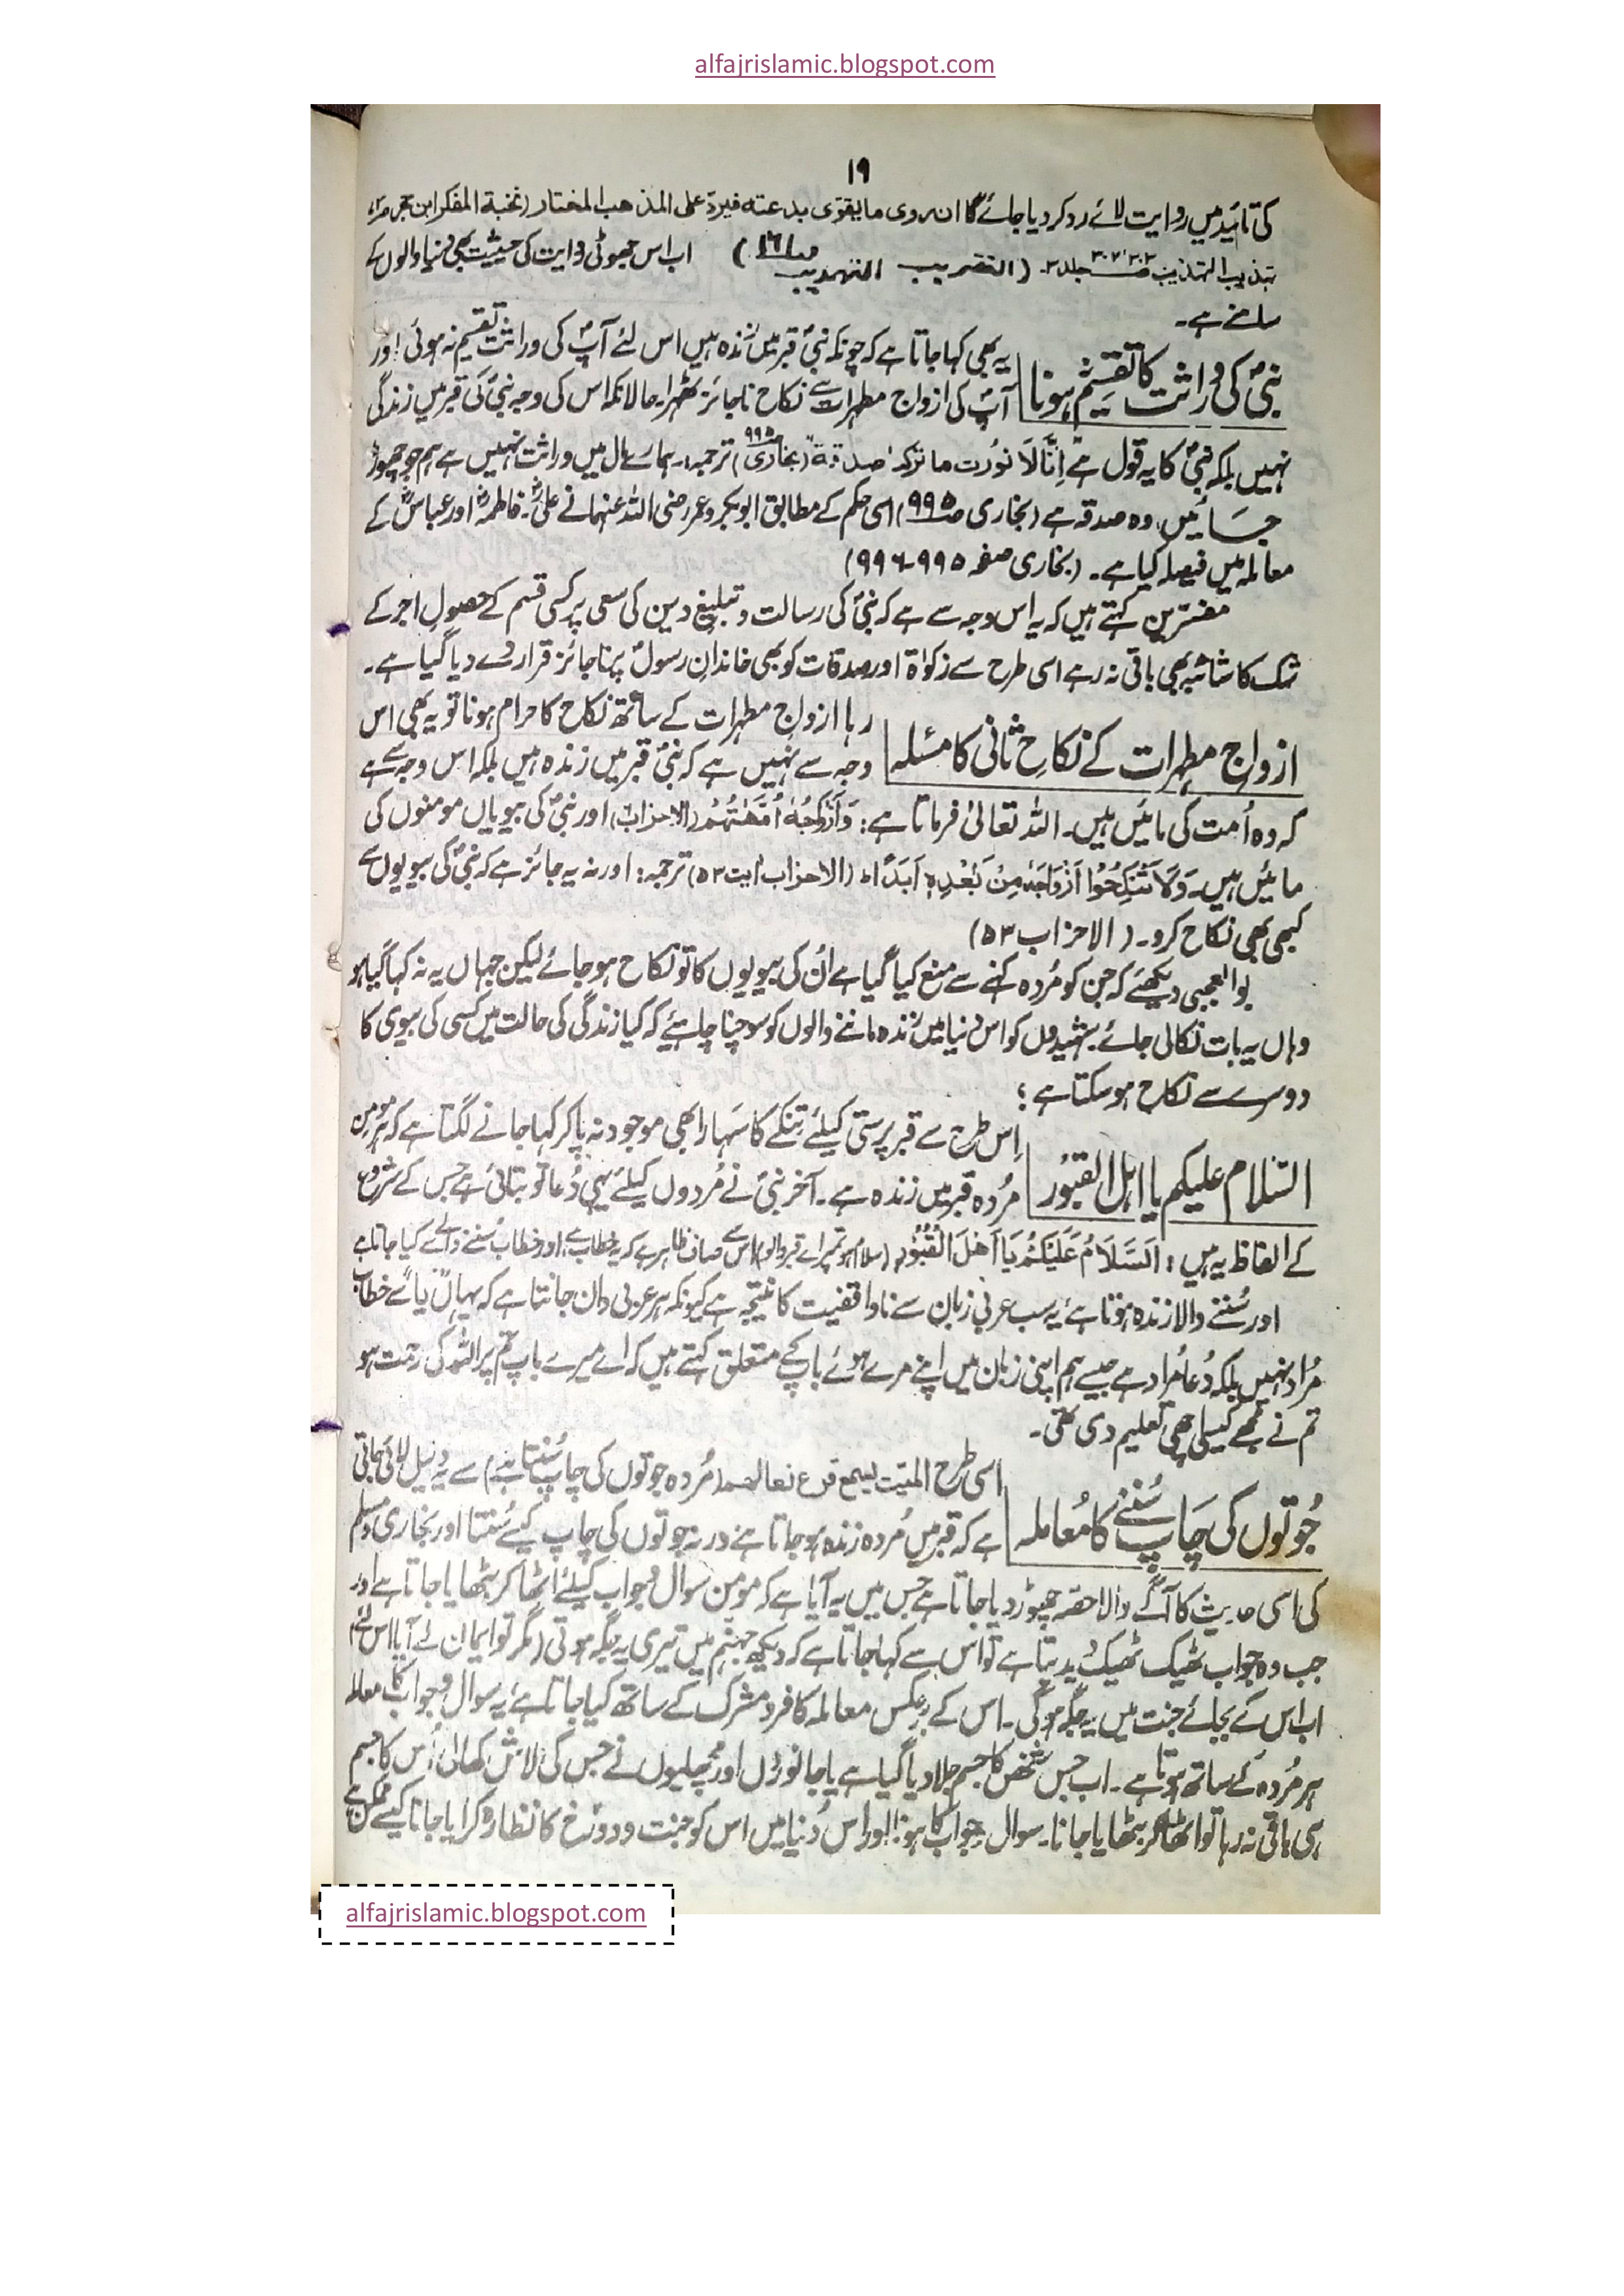 alfajrislamic.blogspot.com
۱۹
کی تائید میں روایت لائے رد کر دیا جائے گا ان روی ما یقوّی بدعتہ فیردّ علی المذھب المختار (نخبة الفکر ابن حجر
تہذیب التہذیب جلد ۲۔ (التقریب التهذیب ) اب اس جھوٹی روایت کی حیثیت بھی دنیا والوں کے
سامنے ہے۔
نبیؐ کی وراثت کا تقسیم ہونا
یہ بھی کہا جاتا ہے کہ چونکہ نبیؐ قبر میں زندہ ہیں اس لئے آپؐ کی وراثت تقسیم نہ ہوئی اور
آپؐ کی ازواج مطہرات سے نکاح ناجائز ٹھہرا۔ حالانکہ اس کی وجہ نبیؐ کی قبر میں زندگی
نہیں بلکہ نبیؐ کا یہ قول ہے اِنَّا لَا نُورَث ما ترکنا صدقة (بخاری ۹۹۵) ترجمہ:۔ ہمارے مال میں وراثت نہیں ہے ہم جو چھوڑ
جائیں وہ صدقہ ہے (بخاری ص ۹۹۵) اسی حکم کے مطابق ابوبکر و عمر رضی اللہ عنہما نے علیؓ۔ فاطمہؓ اور عباسؓ کے
معاملہ میں فیصلہ کیا ہے۔ (بخاری صفحہ ۹۹۵۔۹۹۶)
مفسّرین کہتے ہیں کہ یہ اس وجہ سے ہے کہ نبیؐ کی رسالت و تبلیغ دین کی سعی پر کسی قسم کے حصولِ اجر کے
شک کا شائبہ بھی باقی نہ رہے اسی طرح سے زکوٰة اور صدقات کو بھی خاندانِ رسولؐ پر ناجائز قرار دے دیا گیا ہے۔
ازواج مطہرات کے نکاحِ ثانی کا مسئلہ
رہا ازواج مطہرات کے ساتھ نکاح کا حرام ہونا تو یہ بھی اس
وجہ سے نہیں ہے کہ نبیؐ قبر میں زندہ ہیں بلکہ اس وجہ سے ہے
کہ وہ اُمت کی مائیں ہیں۔ اللہ تعالیٰ فرماتا ہے: وَاَزْوَاجُهٗ اُمَّهٰتُهُمْ (الاحزاب) اور نبیؐ کی بیویاں مومنوں کی
مائیں ہیں۔ وَلَا تَنْكِحُوْا اَزْوَاجَهٗ مِنْ بَعْدِهٖ اَبَدًا ط (الاحزاب آیت ۵۳) ترجمہ: اور نہ یہ جائز ہے کہ نبیؐ کی بیویوں سے
کبھی بھی نکاح کرو۔ (الاحزاب ۵۳)
بوالعجبی دیکھئے کہ جن کو مُردہ کہنے سے منع کیا گیا ہے اُن کی بیویوں کا تو نکاح ہو جائے لیکن جہاں یہ نہ کہا گیا ہو
وہاں یہ بات نکالی جائے۔ شہیدوں کو اس دنیا میں زندہ ماننے والوں کو سوچنا چاہئے کہ کیا زندگی کی حالت میں کسی کی بیوی کا
دوسرے سے نکاح ہو سکتا ہے؛
السّلام علیکم یا اہل القبُور
اِس طرح سے قبر پرستی کیلئے تِنکے کا سَہارا بھی موجود نہ پا کر کہا جانے لگتا ہے کہ ہر مومن
مُردہ قبر میں زندہ ہے۔ آخر نبیؐ نے مُردوں کیلئے یہی دُعا تو بتائی ہے جس کے شروع
کے الفاظ یہ ہیں: اَلسَّلَامُ عَلَيْكُمْ يَا اَهْلَ الْقُبُوْرِ (سلام ہو تم پر اے قبر والو) اس سے صاف ظاہر ہے کہ یہ خطاب ہے، اور خطاب سُننے والے سے کیا جاتا ہے
اور سُننے والا زندہ ہوتا ہے، یہ سب عربی زبان سے ناواقفیت کا نتیجہ ہے کیونکہ ہر عربی دان جانتا ہے کہ یہاں "یا" سے خطاب
مُراد نہیں بلکہ دُعا مُراد ہے جیسے ہم اپنی زبان میں اپنے مرے ہوئے باپ کے متعلق کہتے ہیں کہ اے میرے باپ تم پر اللہ کی رحمت ہو
تم نے مجھے کیسی اچھی تعلیم دی تھی۔
جُوتوں کی چَاپ سُننے کا مُعاملہ
اسی طرح المیّت لیسمع قرع نعالھم (مُردہ جوتوں کی چاپ سُنتا ہے) سے یہ دلیل لائی جاتی
ہے کہ قبر میں مُردہ زندہ ہو جاتا ہے ورنہ جوتوں کی چاپ کیسے سُنتا اور بخاری و مسلم
کی اسی حدیث کا آگے والا حصّہ چھوڑ دیا جاتا ہے جس میں یہ آیا ہے کہ مومن سوال و جواب کیلئے اُٹھا کر بٹھایا جاتا ہے اور
جب وہ جواب ٹھیک ٹھیک دیدیتا ہے تو اس سے کہا جاتا ہے کہ دیکھ جہنّم میں تیری یہ جگہ ہوتی (مگر تو ایمان لے آیا اس لئے)
اب اس کے بجائے جنت میں یہ جگہ ہوگی۔ اس کے برعکس معاملہ کافر و مشرک کے ساتھ کیا جاتا ہے، یہ سوال و جواب کا معاملہ
ہر مُردہ کے ساتھ ہوتا ہے۔ اب جس شخص کا جسم جلا دیا گیا ہے یا جانوروں اور مچھلیوں نے جس کی لاش کھالی اُس کا جسم
ہی باقی نہ رہا تو اٹھا کر بٹھایا جانا۔ سوال جواب کا ہونا اور اس دُنیا میں اس کو جنت و دوزخ کا نظارہ کرایا جانا کیسے ممکن ہے
alfajrislamic.blogspot.com